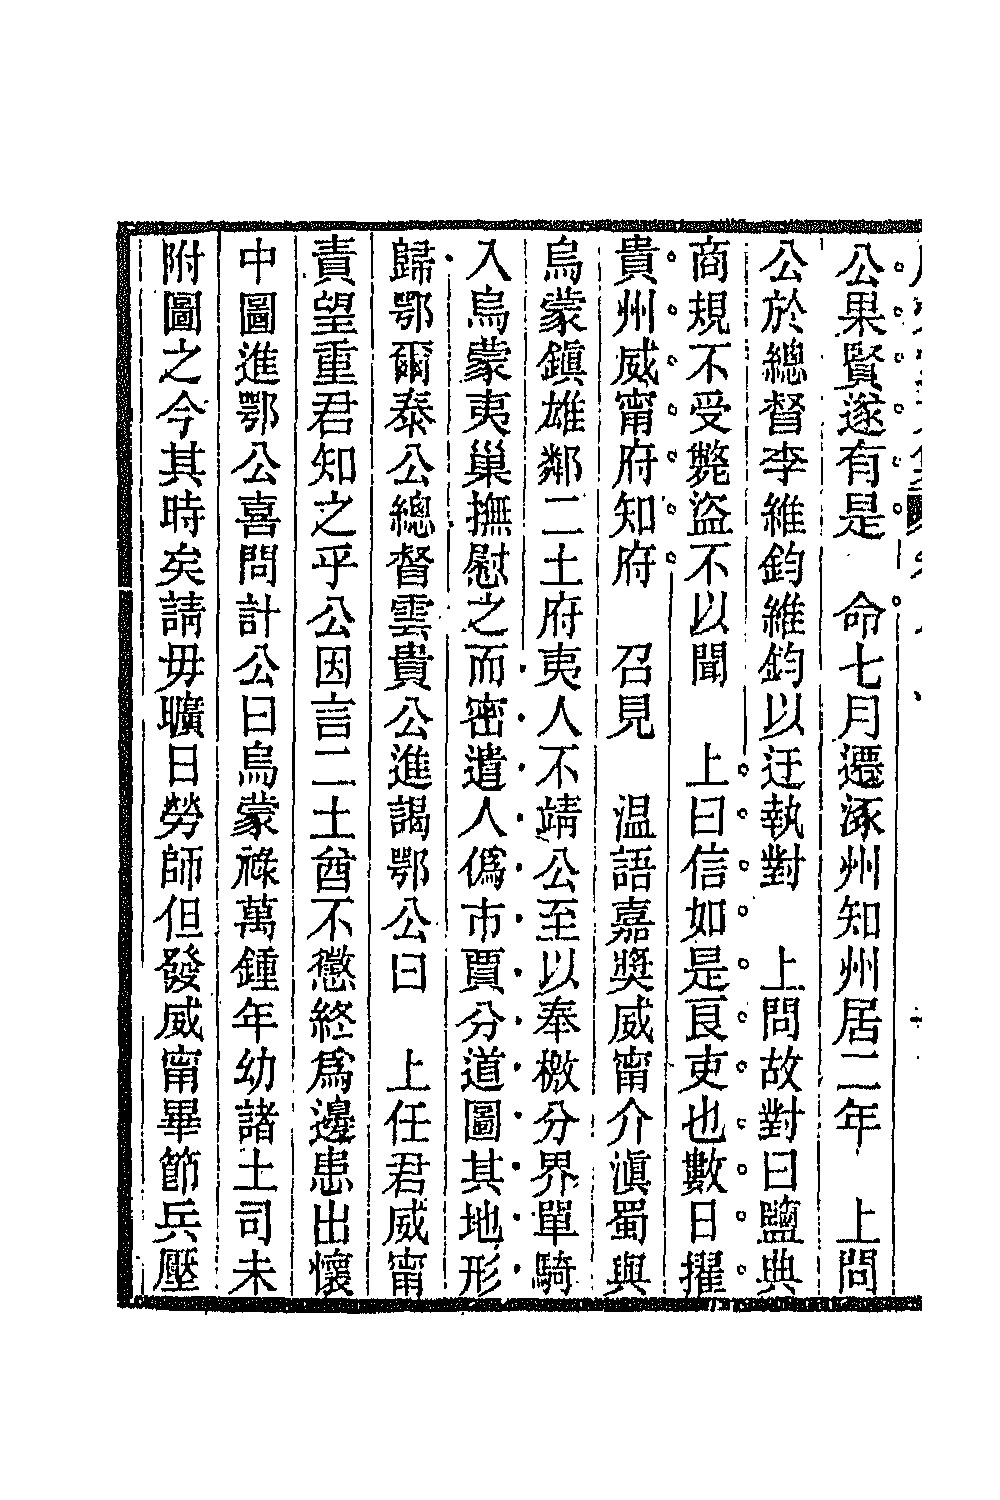 公果賢遂有是　命七月遷涿州知州居二年　上問
公於總督李維鈞維鈞以迂執對　上問故對曰鹽典
商規不受斃盜不以聞　上曰信如是良吏也數日擢
貴州威甯府知府　召見　温語嘉奬威甯介滇蜀與
烏蒙鎮雄鄰二土府夷人不靖公至以奉檄分界單騎
入烏蒙夷巢撫慰之而密遣人僞市賈分道圖其地形
歸鄂爾泰公總督雲貴公進謁鄂公曰　上任君威甯
責望重君知之乎公因言二土酋不懲終爲邊患出懷
中圖進鄂公喜問計公曰烏蒙祿萬鍾年幼諸土司未
附圖之今其時矣請毋曠日勞師但發威甯畢節兵壓